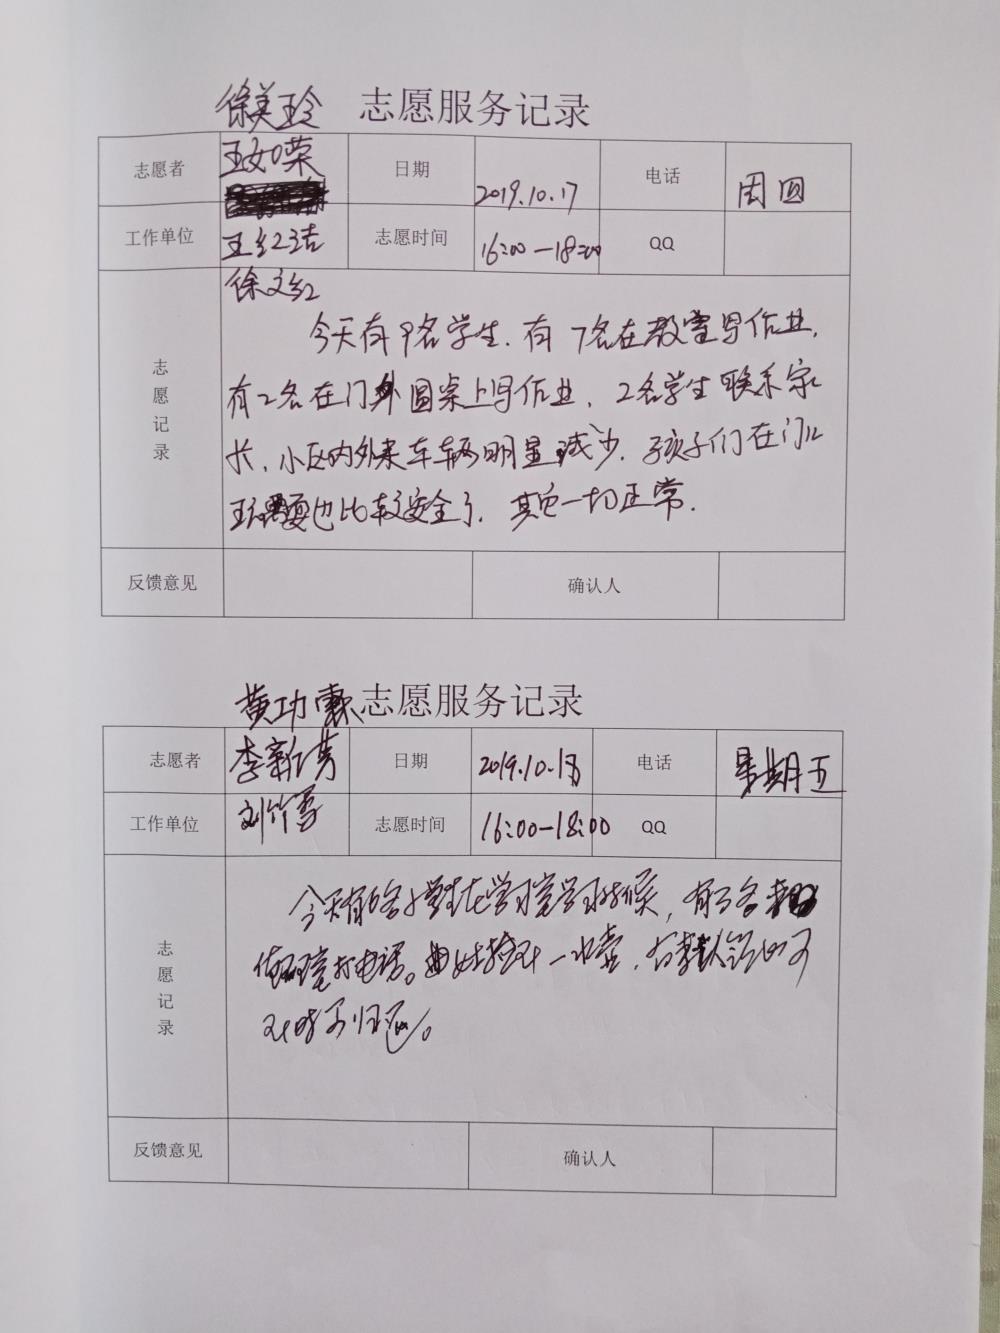 徐美玲 志愿服务记录
志愿者 王如荣 日期 2019.10.17 电话 周四
工作单位 王红洁 志愿时间 16:00—18:00 QQ
徐文红
志愿记录
今天有9名学生.有7名在教室写作业,
有2名在门外圆桌上写作业,2名学生联系家
长,小区内外来车辆明显减少.孩子们在门口
玩耍也比较安全了.其它一切正常.
反馈意见 确认人
黄功 志愿服务记录
志愿者 李新芳 日期 2019.10.18 电话 星期五
工作单位 刘竹 志愿时间 16:00—18:00 QQ
志愿记录
今天有6名学生在学习室学习,有3名
打电话。一水壶,
反馈意见 确认人